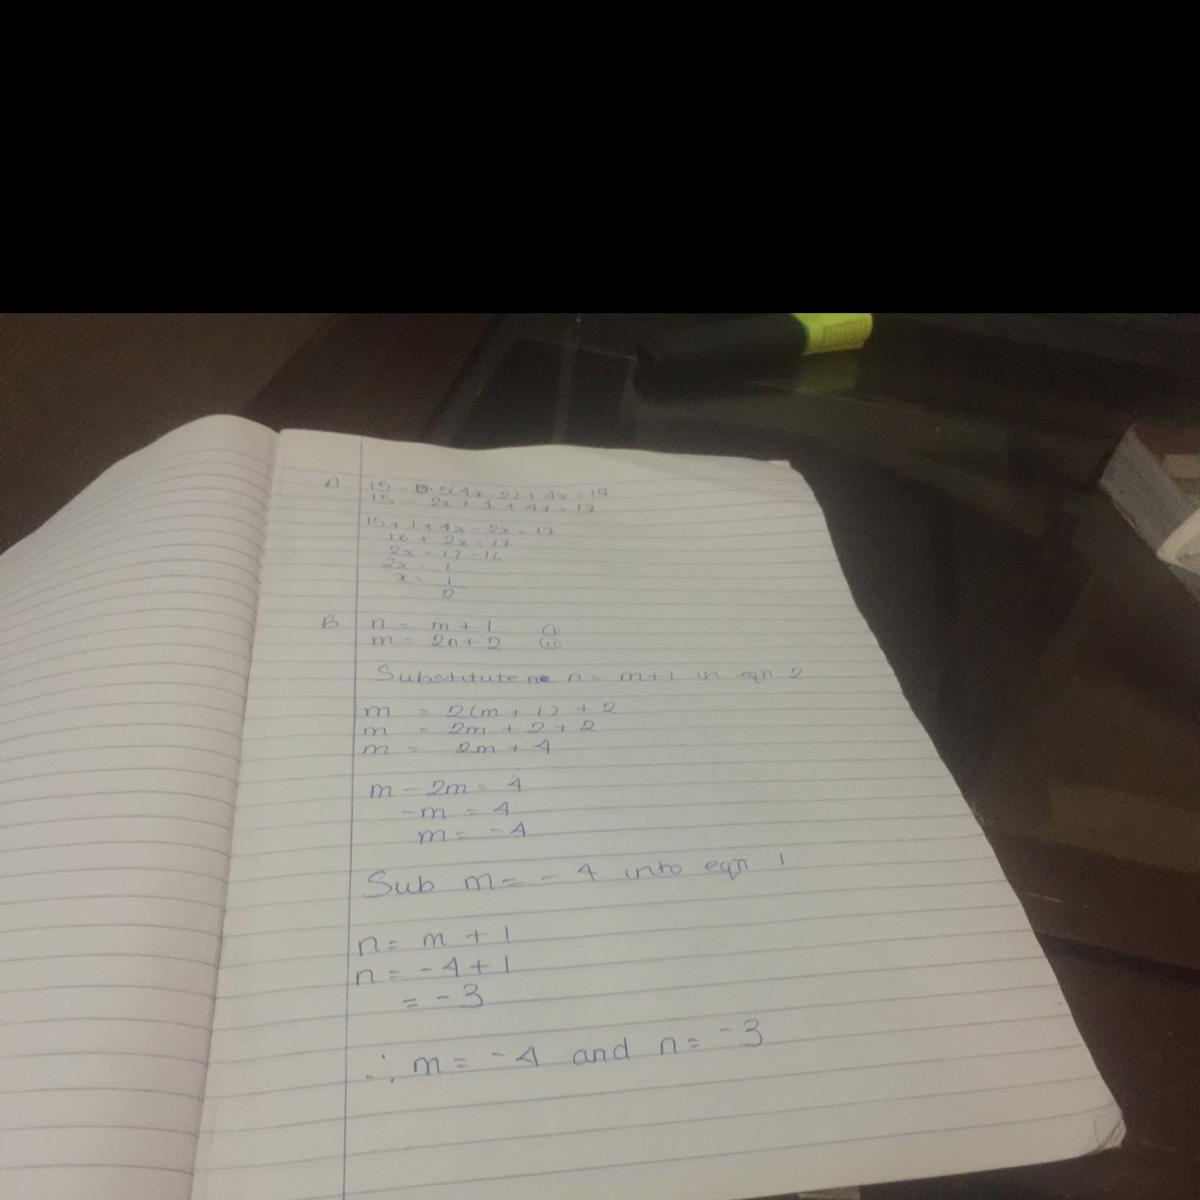 A) 15 - 0.5(4x-2) + 4x = 17
15 - 2x + 1 + 4x = 17
15 + 1 + 4x - 2x = 17
16 + 2x = 17
2x = 17 - 16
2x = 1
x = 1
2
B n = m + 1 (i)
m = 2n + 2 (ii)
Substitute n = m+1 in eqn 2
m = 2(m + 1) + 2
m = 2m + 2 + 2
m = 2m + 4
m - 2m = 4
-m = 4
m = -4
Sub m = -4 into eqn 1
n = m + 1
n = -4 + 1
= -3
∴ m = -4 and n = -3